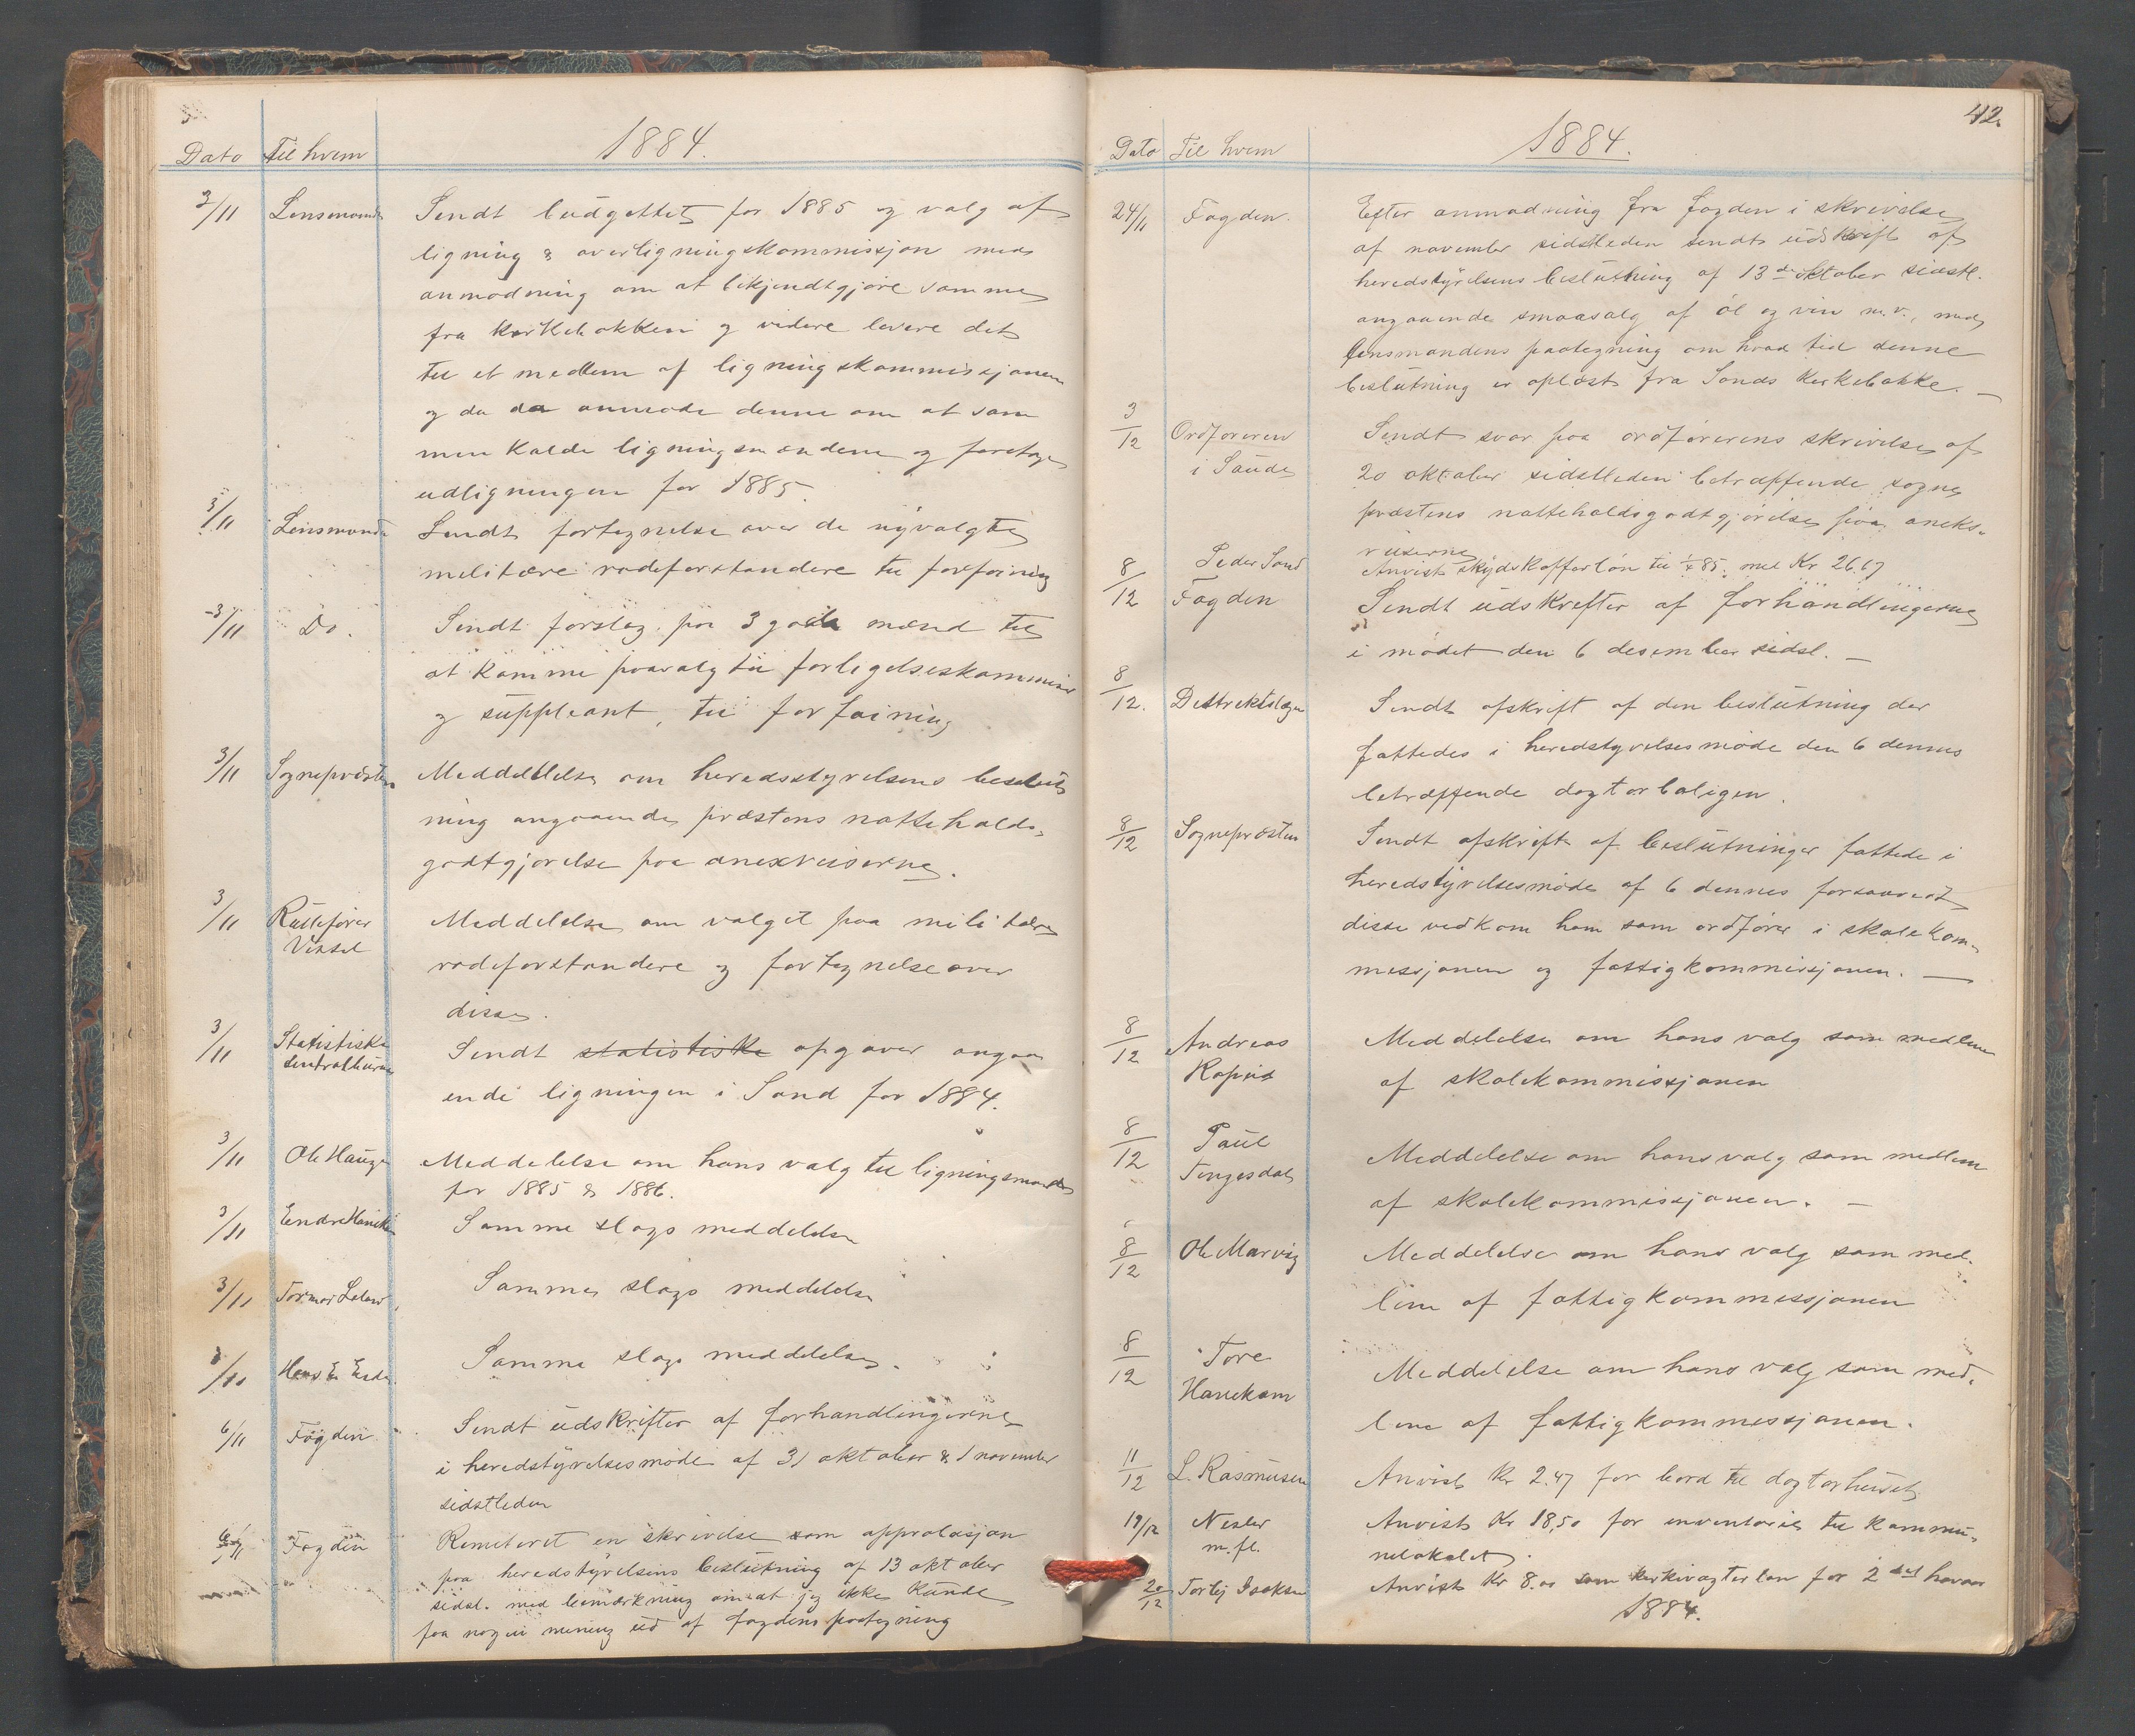 Dato Til hvem 1884.
3/11 Lensmanden Sendt budgettet for 1885 og valg af
ligning & overligningskommissjon med
anmodning om at bekjendtgjøre samme
fra kerkebakken og videre levere det
til et medlem af ligningskommissjonen
og da da anmode denne om at sam
men kalde ligningsmændene og foretage
udligningen for 1885.
3/11 Lensmanden Sendt fortegnelse over de nyvalgte
melitære rodeforstandere til forføining
3/11 Do. Sendt forslag paa 3 gode mænd til
at komme paavalg til forligelseskommissær
og suppleant, til forføining
3/11 Sognepresten Meddelelse om heredsstyrelsens beslut
ning angaaende præstens nattehalds-
godtgjørelse paa anexreiserne.
3/11 Rullefører Meddelelse om valget paa militære
Viksel rodeforstandere og fortegnelse over
disse.
3/11 Statistiske Sendt statistiske opgaver angaa
Sentralbureau ende ligningen i Sand for 1884.
3/11 Ole Hauge Meddelelse om hans valg til ligningsmand
for 1885 & 1886.
3/11 Endre Samme slags meddelelse
3/11 Tormod Samme slags meddelelse
3/11 Hans E. Samme slags meddelelse.
6/11 Fogden Sendt udskrifter af forhandlingerne
i heredstyrelsesmøde af 31 oktober & 1 november
sidstleden
6/11 Fogden Remiteret en skrivelse som approbasjon
paa heredstyrelsens beslutning af 13 oktober
sidstl. med bemærkning om at jeg ikke kunde
faa nogen mening ud af fogdens paategning
42.
Dato Til hvem 1884.
24/11 Fogden. Efter anmodning fra fogden i skrivelse
af november sidstleden sendt udskrift af
heredstyrelsens beslutning af 13de oktober sidstl.
angaaende smaasalg af öl og vin m.v., med
lensmandens paategning om hvad tid denne
beslutning er oplæst fra Sands kerkebakke.
3/12 Ordføreren Sendt svar paa ordførerens skrivelse af
i Saude 20 oktober sidstleden betræffende sogne
præstens nattehaldsgodtgjørelse paa aneks-
reiserne
Peder Sand Anvist skydskafferløn til 1/4 85. med Kr 26.67
8/12 Fogden Sendt udskrefter af forhandlingerne
i mødet den 6 desember sidstl.
8/12. Destrektslægen Sendt afskrift af den beslutning der
fattedes i heredstyrelsesmøde den 6 dennes
betræffende dogtorboligen.
8/12 Sognepresten Sendt afskrift af beslutninger fattede i
heredstyrelsesmøde af 6 dennes forsaavidt
disse vedkom ham som ordfører i skolekom-
messjonen og fattigkommissjonen.
8/12 Andreas Meddelelse om hans valg som medlem
af skolekommissjonen
8/12 Paul Meddelelse om hans valg som medlem
Tengesdal af skolekommissjonen.
8/12 Ole Marvig Meddelelse om hans valg som med-
lem af fattigkommessjonen
8/12 Tore Meddelelse om hans valg som med-
Hanekam lem af fattigkommessjonen.
11/12 L. Rasmusen Anvist kr 2.47 for bord til dogtorhuset
19/12 Nesler Anvist Kr 18,50 for inventarie til kommu-
m. fl. nelokalet.
20/12 Torbj Isaksen Anvist Kr 8.00 som kerkevægterløn for 2det halvaar
1884.